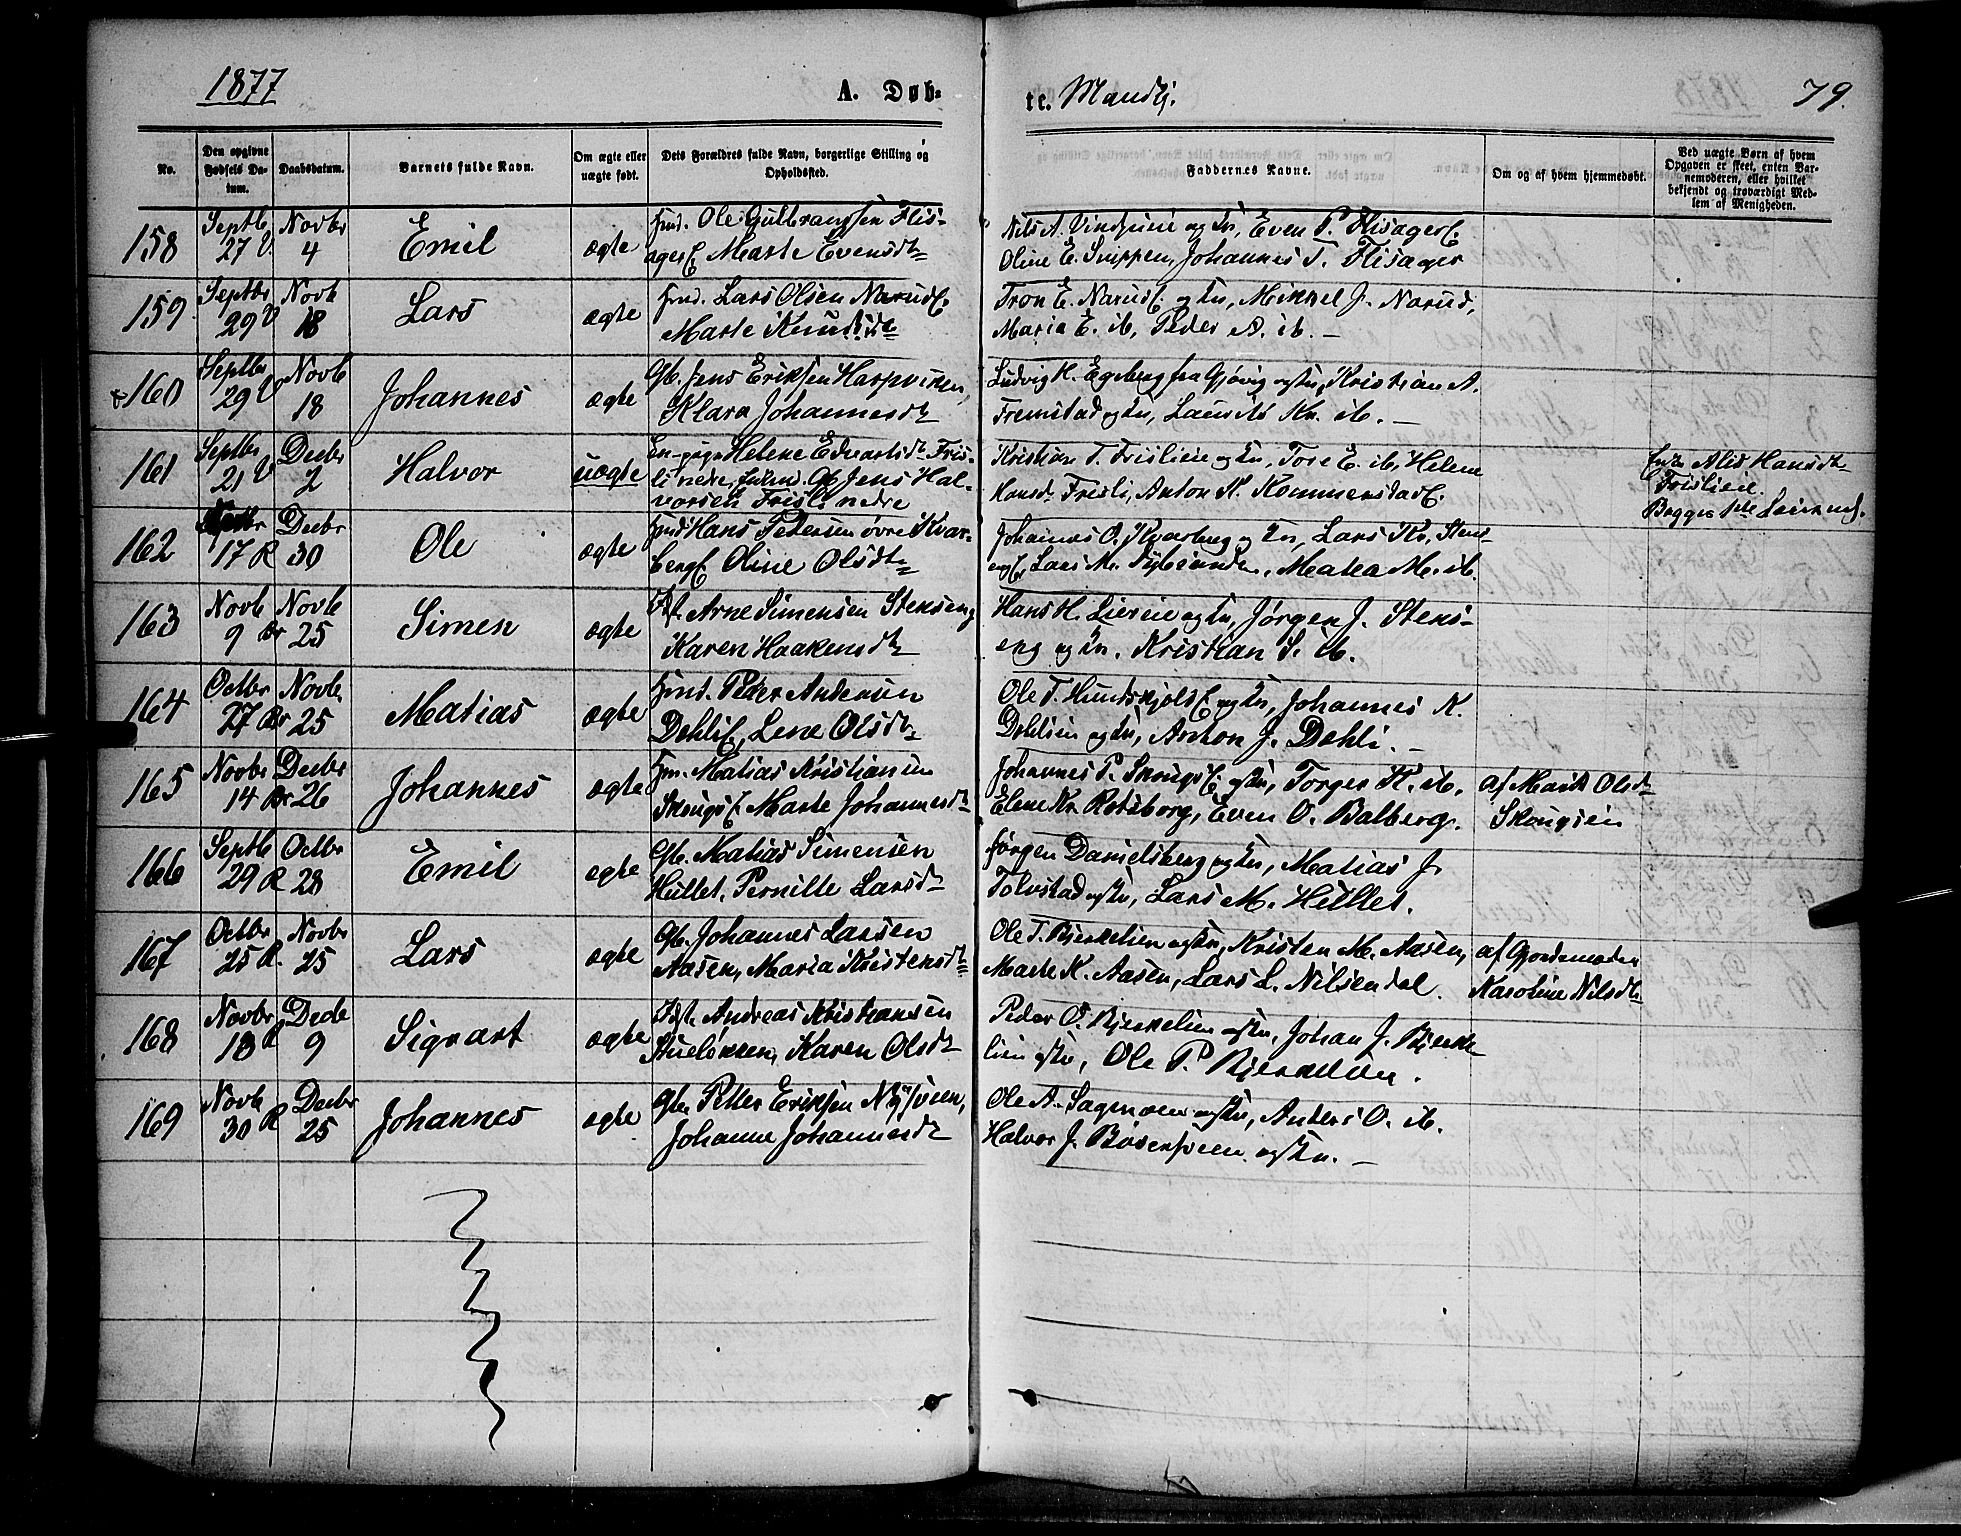 1877
A. Døb-
te. Mandkj.
79.
No.
Den opgivne Fødsels Da-tum.
Daabsdatum.
Barnets fulde Navn.
Om ægte eller uægte født.
Dets Forældres fulde Navn, borgerlige Stilling og Opholdsted.
Faddernes Navne.
Om og af hvem hjemmedøbt.
Ved uægte Børn af hvem Opgaven er skeet, enten Bar-nemoderen, eller hvilket bekjendt og troværdigt Med-lem af Menigheden.
158 Septb 27 V. Novbr 4 Emil ægte Hmd. Ole Gulbrandsen Flis-
agerE. Marte Evensdt
Nils A. og Kn, Even P. FlisagerE.
Oline E. Snippen, Johannes T. Flisager
159 Septbr 29 V Novb 18 Lars ægte Hmd. Lars Olsen NarudE.
Marte Knudsdt
Tron E. NarudE. og Kn, Mikkel J. Narud,
Maria E. ib, Peder A. ib. —
160 Septbr 29 V Novb 18 Johannes ægte Gb. Jens Eriksen Haspviken,
Klara Johannesdt
Ludvig H. Egeberg fra Gjøvig og Kn, Kristian A.
Fremstad og Kn, Laurits Kn. ib. —
161 Septbr 21 V Decbr 2 Halvor uægte En. pige Helene Edvartsdt Fris-
li nedre, Gb Jens Hal-
vorsen Frisli nedre
Kristian T. Frislieie og Kn, Tore E. ib, Helene
Hansdt Frisli, Anton K. KommenstadE.
Enke Alis Hansdt
Frislieie.
Begges 1ste Leierm.
162 17 R Decbr 30 Ole ægte Hmd Hans Pedersen øvre Kvar-
bergE. Oline Olsdt
Johannes O. Kvarberg og Kn, Lars Kr. Stens-
engE, Lars M. , Matea M. ib.
163 Novb 9 Br Novb 25 Simen ægte Arne Simensen Stenseng
Karen Haakensdt
Hans H. Lieeie og Kn, Jørgen J. Stens-
eng og Kn. Kristian S. ib.
164 Octbr 27 Br Novb. 25 Matias ægte Hmd. Peder Andersen
DehliE, Lene Olsdt
Ole T. HundskjoldE og Kn, Johannes K.
Dehlieie og Kn, Anton J. Dehli. —
165 Novbr 14 Br Decbr 26 Johannes ægte Hm. Matias Kristiansen
SkougsE. Marte Johannesdt
Johannes P. SkougsE. og Kn, Torger H. ib.
Elene Kr. Rotsborg, Even O. Balberg.
af Marit Olsdt
Skougseie
166 Septb 29 R Octbr 28 Emil egte Gb. Matias Simensen
Hullet, Pernille Larsdt
Jørgen Danielsberg og Kn, Matias J.
Tolvstad og Kn, Lars M. Hullet.
167 Octbr 25 R. Novbr 25 Lars ægte Gb. Johannes Larsen
Aasen, Maria Kristensdt
Ole T. Bjerkelien og Kn, Kristen M. Aasen,
Marte K. Aasen, Lars L. Nilsendal.
af Gjordemoder
Karoline Nilsdt
168 Novbr 18 R Decb 9 Sigvart ægte Andreas Kristiansen
Stueløkken, Karen Olsdt
Peder O. Bjerkelien og Kn, Johan J. Bjerke-
lien og Kn, Ole P. Bjerkelien.
169 Novb 30 R Decbr 25 Johannes egte Gb. Petter Eriksen Nysveen,
Johanne Johannesdt
Ole A. Sagmoen og Kn, Anders O. ib.
Halvor J. Bøsensveen og Kn. —